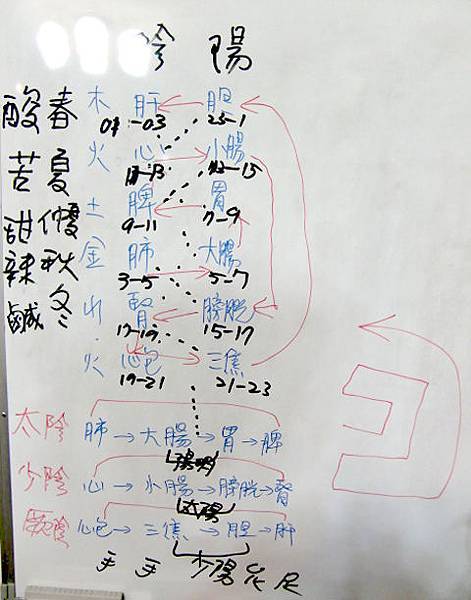 陰 陽
酸 春 木 肝 胆
01-03 23-1
苦 夏 火 心 小腸
11-13 13-15
甜 優 土 脾 胃
9-11 7-9
辣 秋 金 肺 大腸
3-5 5-7
鹹 冬 水 腎 膀胱
17-19 15-17
火 心包 三焦
19-21 21-23
太陰 肺→大腸→胃→脾
陽明
少陰 心→小腸→膀胱→腎
太陽
厥陰 心包→三焦→胆→肝
手 手 少陽 足 足